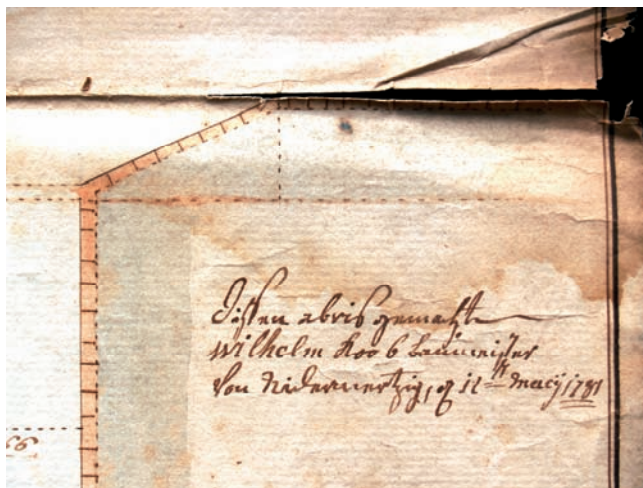 Dissen abris gemacht
Wilhelm Koob baumeister
Von Nidermertzig, 12ten Maeij 1781
66